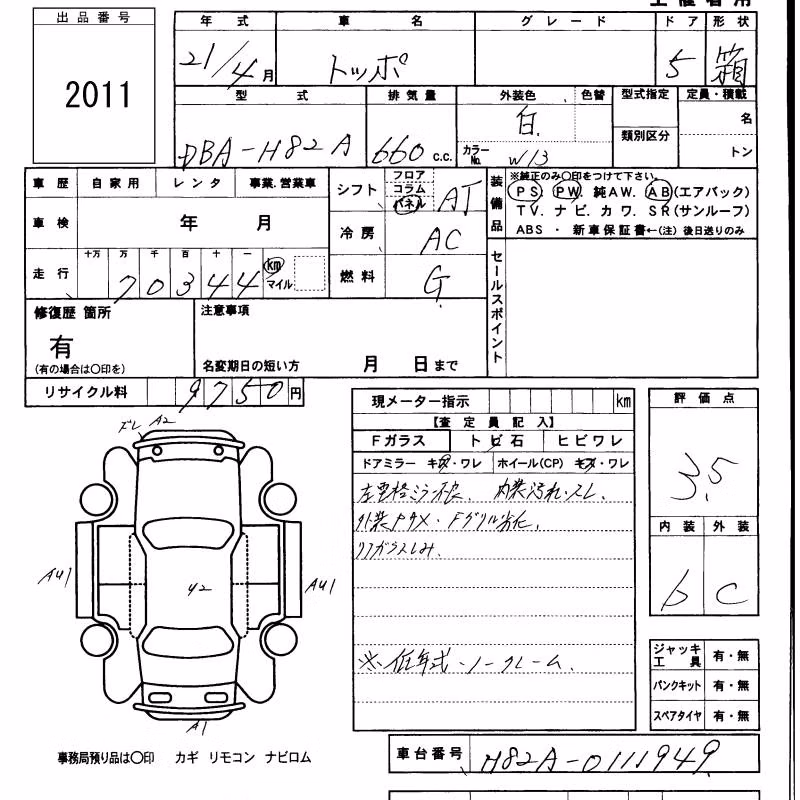 出品番号
2011
年式 車名 グレード ドア 形状
21/4月 トッポ 5 箱
型式 排気量 外装色 色替 型式指定 定員・積載
DBA-H82A 660 c.c. 白 類別区分 名
カラーNo. W13 トン
車歴 自家用 レンタ 事業.営業車
車検 年 月
走行 十万 万 千 百 十 一 km マイル
70344
シフト フロア コラム パネル AT
冷房 AC
燃料 G
装備品
※純正のみ〇印をつけて下さい。
PS PW. 純AW. AB(エアバック)
TV. ナビ. カワ. SR(サンルーフ)
ABS ・ 新車保証書←(注) 後日送りのみ
セールスポイント
修復歴 箇所
有
(有の場合は〇印を)
注意事項
名変期日の短い方 月 日まで
リサイクル料 9750円
現メーター指示 km
【査定員記入】
Fガラス トビ石 ヒビワレ
ドアミラー キズ・ワレ ホイール(CP) キズ・ワレ
内装汚れ・スレ、
外装キズ・Fグリル劣化、
リアガラスしみ、
※低年式・ノークレーム、
評価点
3.5
内装 外装
b C
ジャッキ工具 有・無
パンクキット 有・無
スペアタイヤ 有・無
A2
AU1
U2
AU1
A1
事務局預り品は〇印 カギ リモコン ナビロム
車台番号 H82A-0111949